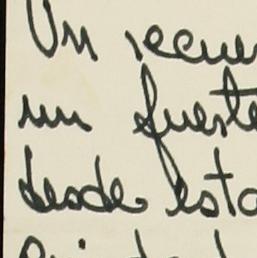 Un recue
un fuerte
desde esta